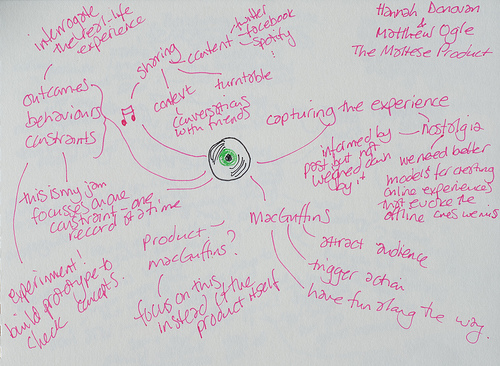 Hannah Donovan
&
Matthew Ogle
The Maltese Product
interrogate
the real-life
experience
outcomes
behaviours
constraints
this is my jam
focusses on one
constraint - one
record at a time
experiment!
build prototype to
check concepts.
sharing
content
twitter
facebook
spotify
!
context
conversations
with friends
turntable
capturing the experience
nostalgia
informed by
past but not
weighed down
by it
we need better
models for creating
online experiences
that evoke the
offline ones we miss
MacGuffins
attract audience
trigger action
have fun along the way.
Product-
MacGuffins?
focus on this
instead of the
product itself